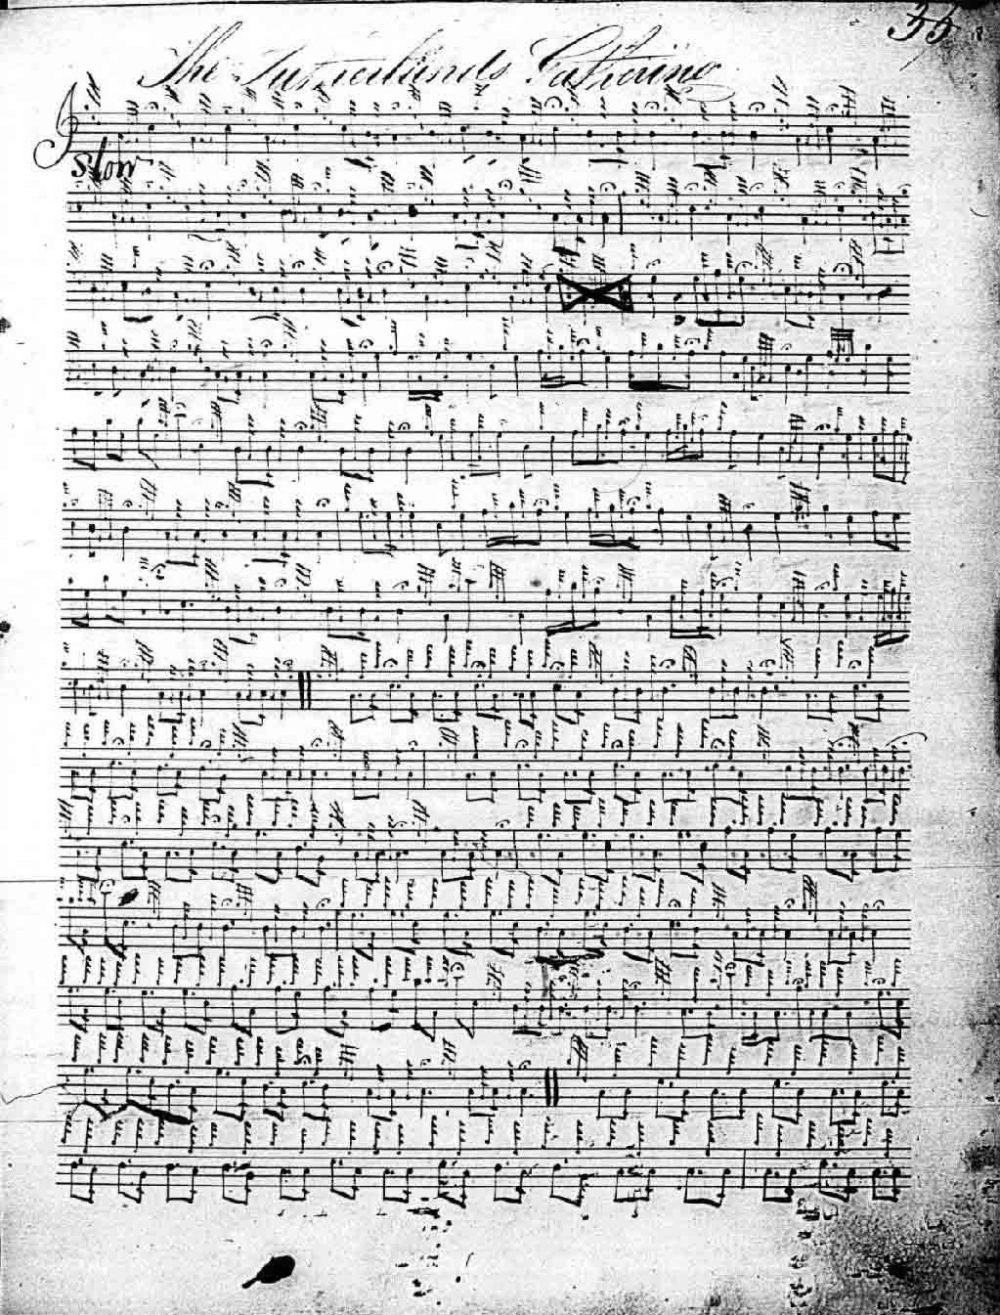 35
The Sutherlands Gathering
Slow